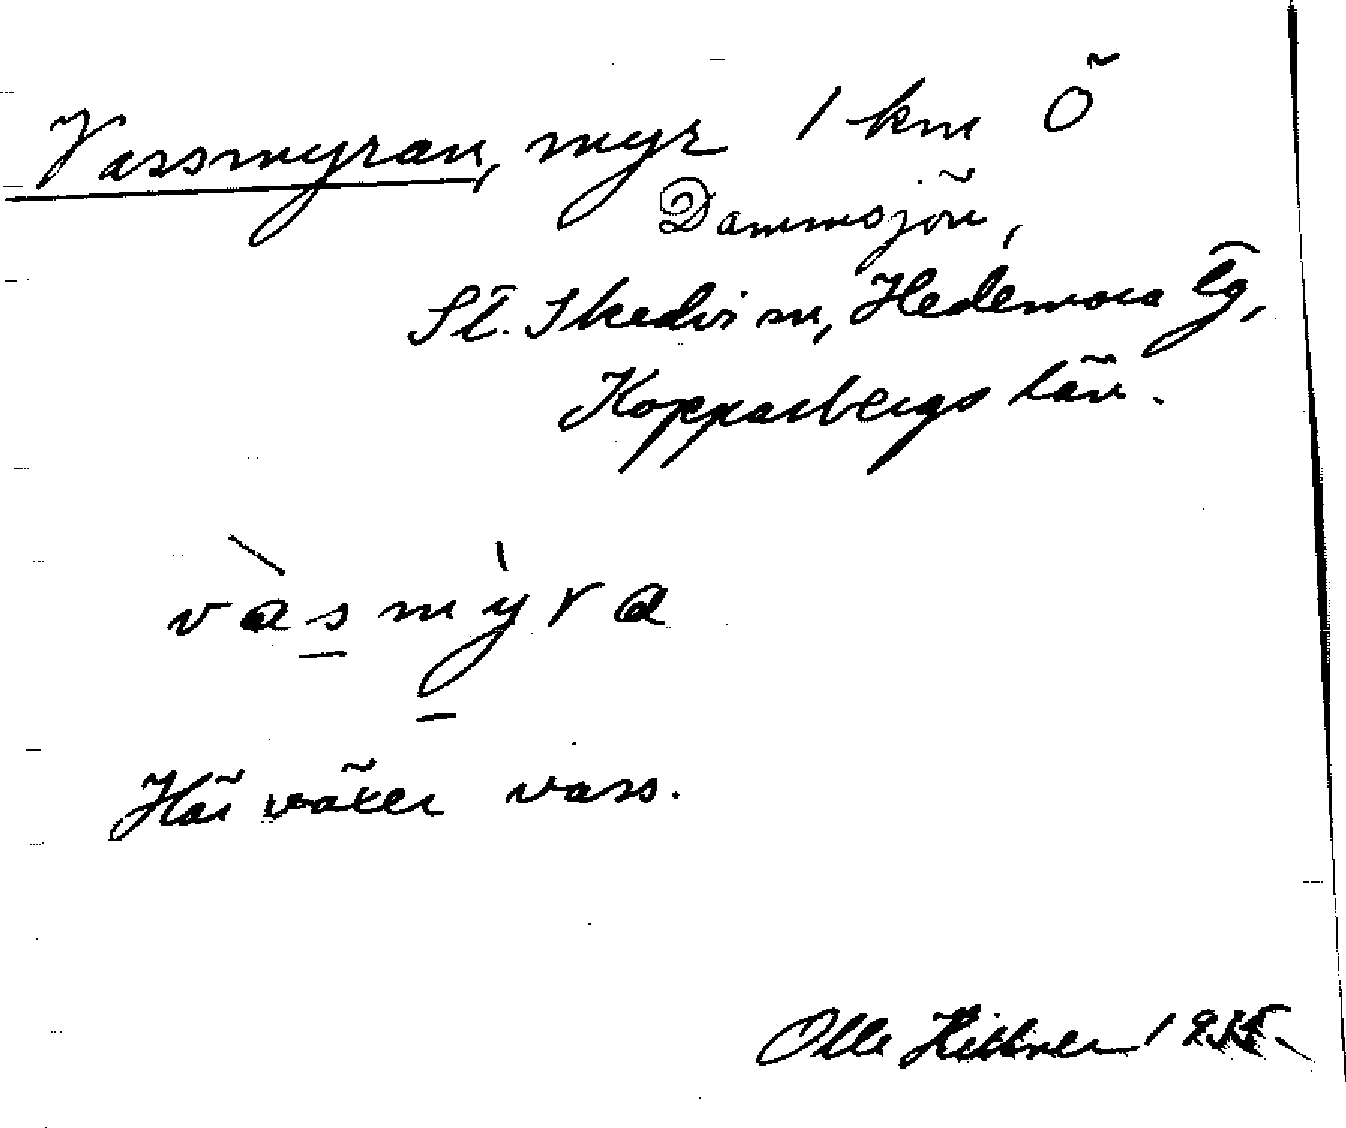 Vassmyran, myr 1 km Ö
Dammsjön,
St. Skedvi sn, Hedemora tg,
Kopparbergs län.
vàsmỳra
Här växer vass.
Olle